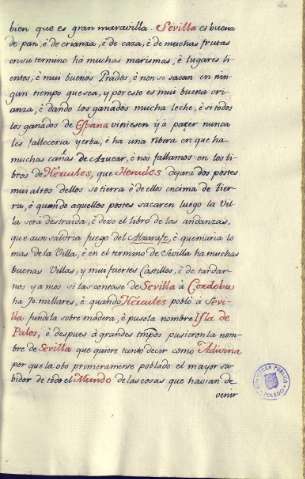 bien que es gran maravilla. Sevilla es buena
de pan, è de crianza, è de caza, è de muchas frutas
en su termino hà muchas marismas, è lugares li-
entos, è mui buenos Prados, è non se sacan en nin-
gun tiempo que sea, y por esto es mui buena cri-
anza, è dando los ganados mucha leche, è si todos
los ganados de España viniesen y à pacer nunca
les falleceria yerba, è ha una ribera en que ha
muchas cañas de Azucar, è nos fallamos en los li-
bros de Hercules, que Hercules dejara dos postes
mui altos dellos so tierra è dellos encima de tier-
ra, è quando aquellos postes sacaren luego la Vi-
lla serà destruida, è dixo el libro de las andanzas,
que aun saldria fuego del Axarafe, è quemaria lo
mas de la Villa, è en el termino de Sevilla ha muchas
buenas Villas, y mui fuertes Castillos, è de tardar-
nos ya mos si las contase de Sevilla à Cordoba
ha 70. millares, è quando Hercules poblò à Sevi-
lla fundòla sobre madera, è pusola nombre Isla de
Palos, è despues à grandes tmpos pusieron la nom-
bre de Sevilla que quiere tanto decir como Adivina
por que la obo primeramente poblado el mayor sa-
bidor de todo el Mundo de las cosas que havian de
venir